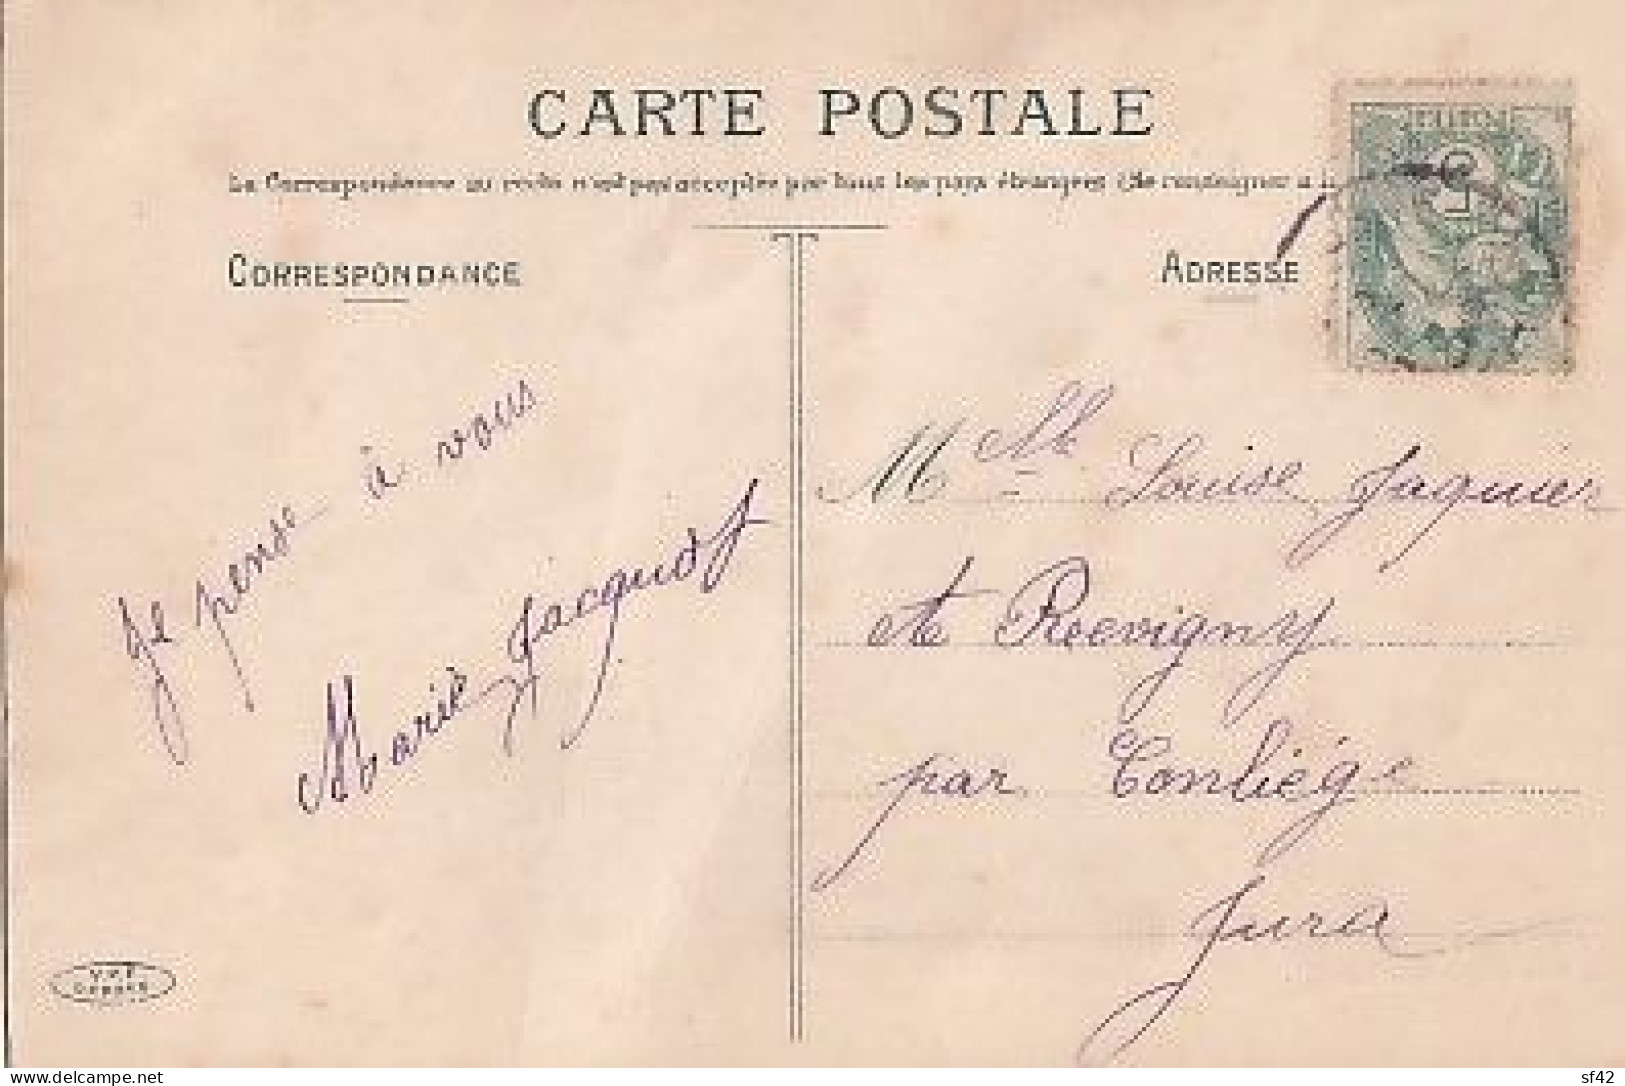 CARTE POSTALE
La Correspondance au recto n'est pas acceptée par tous les pays étrangers (Se renseigner à l
CORRESPONDANCE
ADRESSE
Je pense à vous
Marie Jacquot
Mlle Louise Jaquier
à Revigny
par Conliége
Jura
delcampe.net
sf42